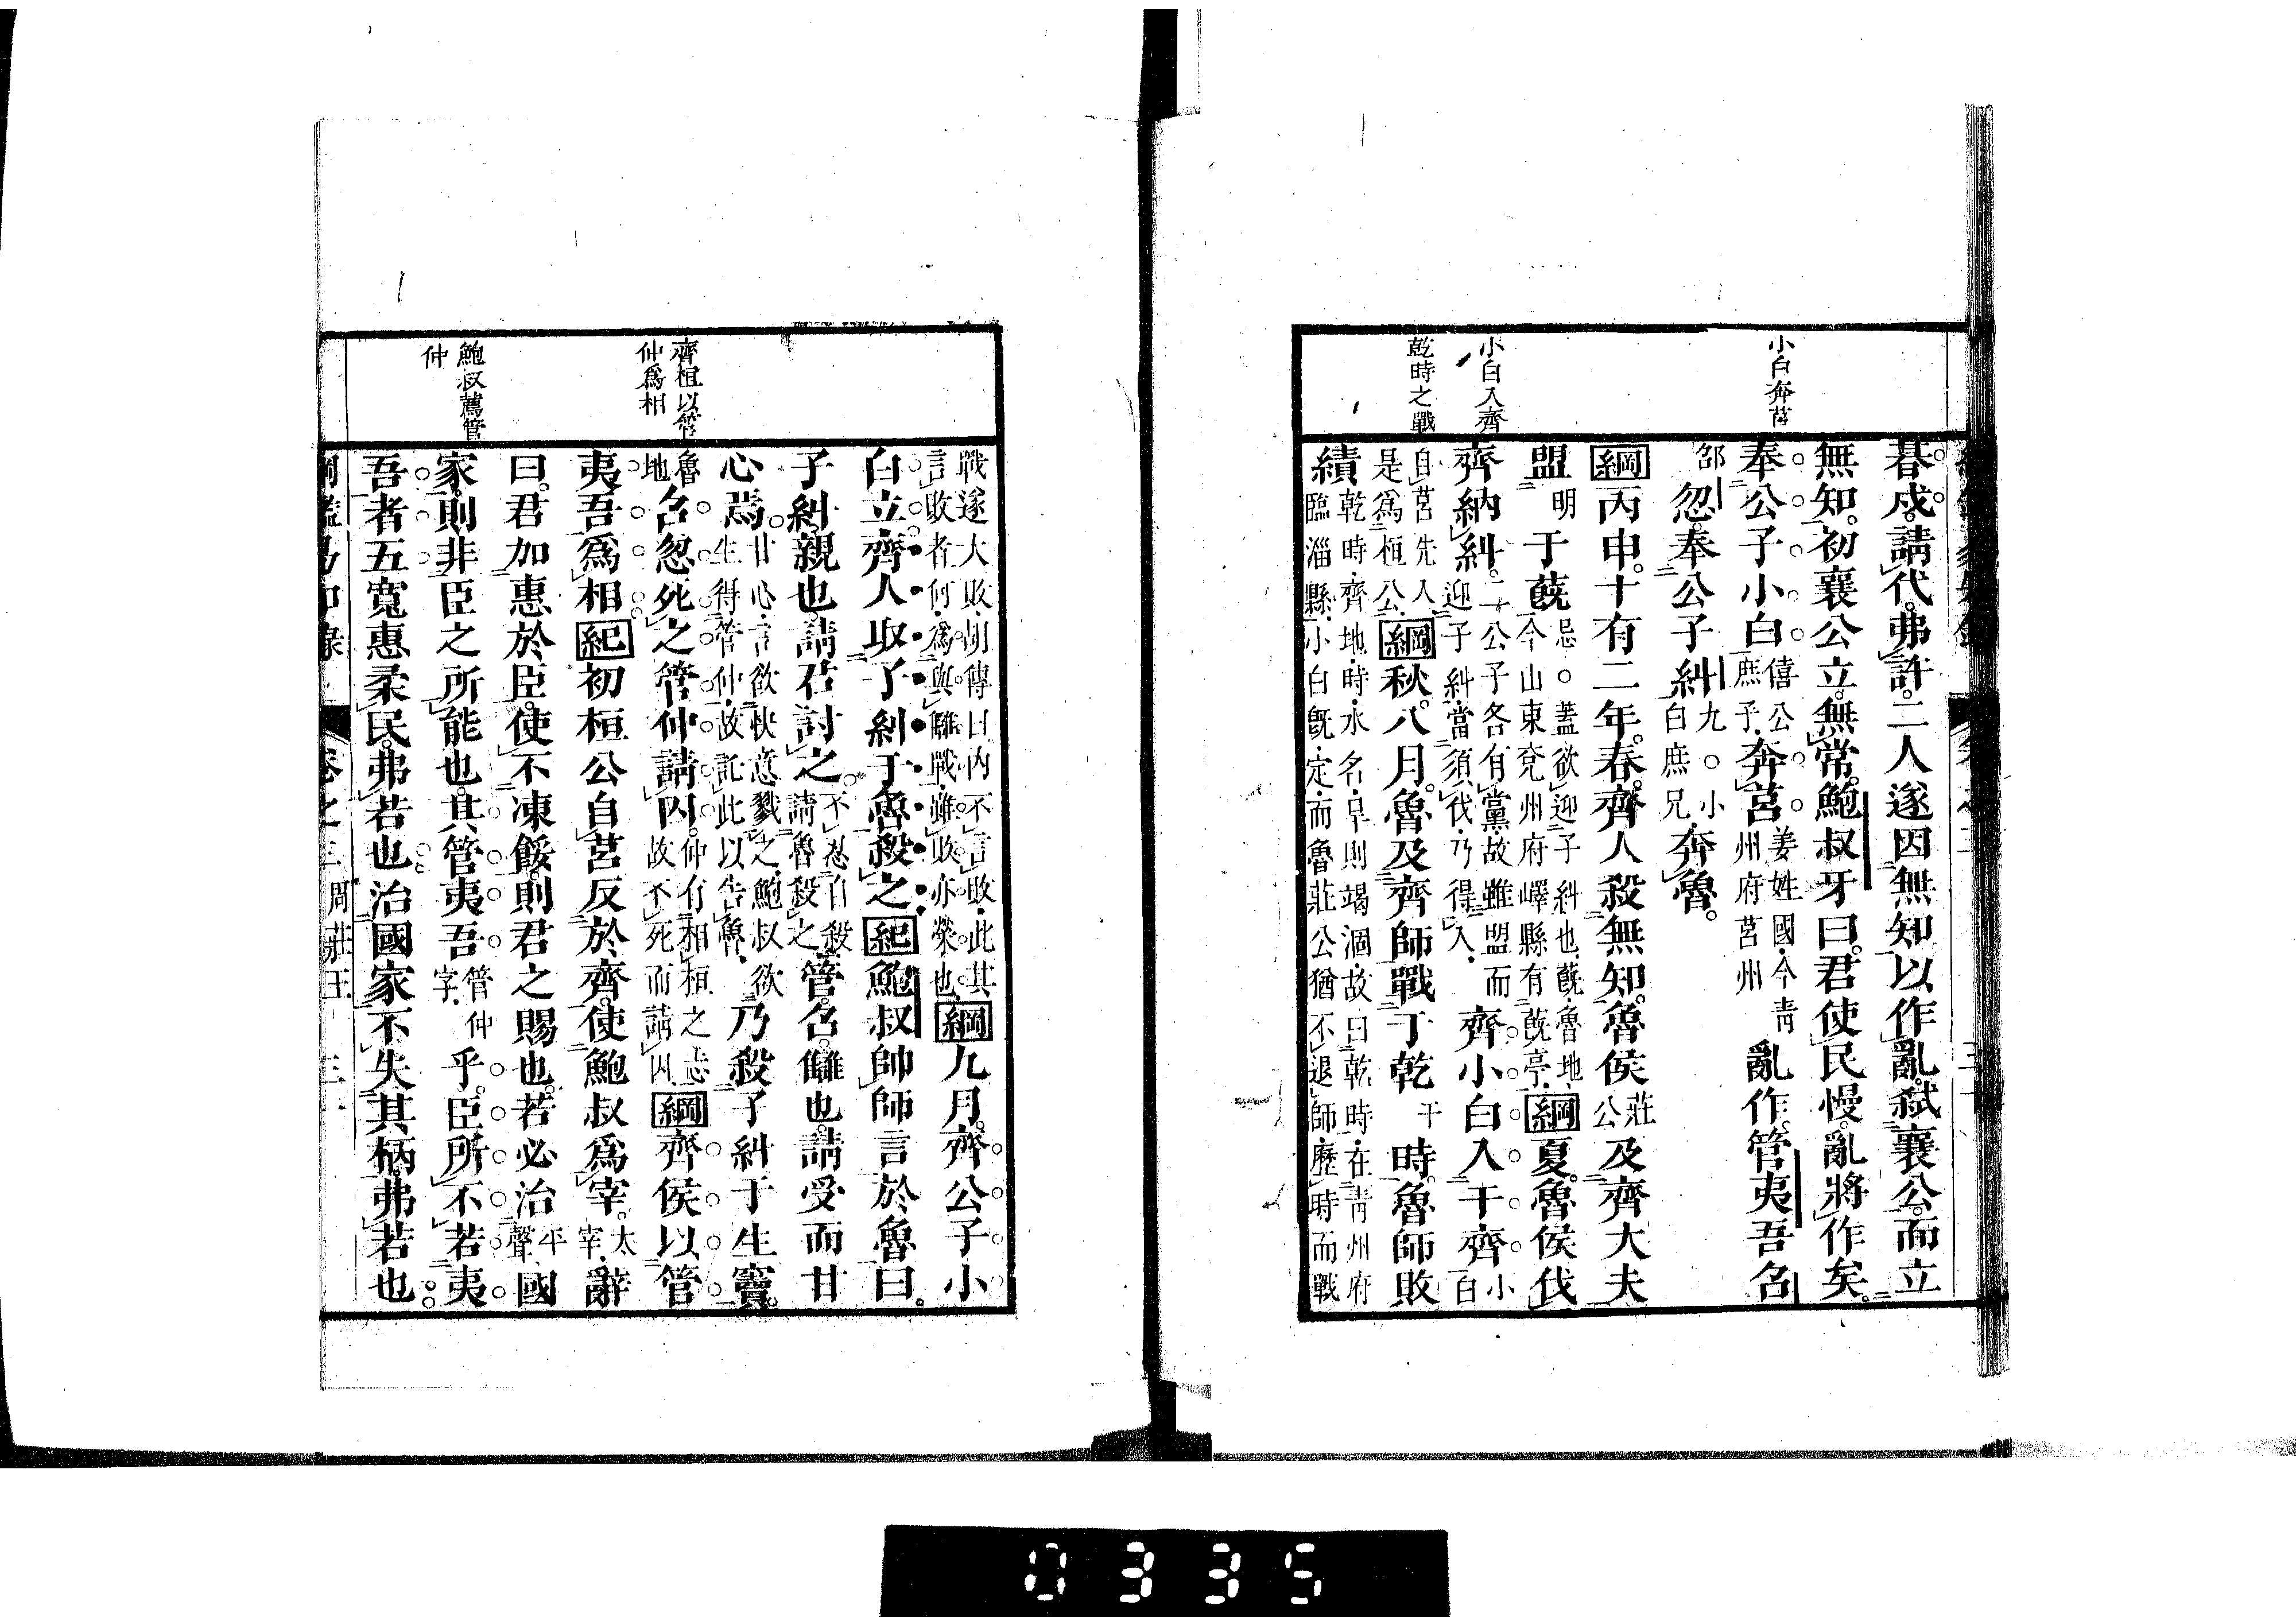 小白奔莒
小白入齊
乾時之戰
朞戍請代弗許二人遂因無知以作亂弒襄公而立
無知初襄公立無常鮑叔牙曰君使民慢亂將作矣
奉公子小白僖公庶子奔莒姜姓國今青州府莒州亂作管夷吾召
邵忽奉公子糾九○小白庶兄奔魯
綱丙申十有二年春齊人殺無知魯侯莊公及齊大夫
盟明于蔇忌○蓋欲迎子糾也蔇魯地今山東兗州府嶧縣有蔇亭綱夏魯侯伐
齊納糾二公子各有黨故雖盟而迎子糾當須伐乃得入齊小白入于齊小白
自莒先入是爲桓公綱秋八月魯及齊師戰于乾干時魯師敗
績乾時齊地時水名旱則竭涸故曰乾時在青州府臨淄縣小白旣定而魯莊公猶不退師歷時而戰
齊桓以管仲爲相
鮑叔薦管仲
戰遂大敗胡傳曰內不言敗此其言敗者何爲與讎戰雖敗亦榮也綱九月齊公子小
白立齊人取子糾于魯殺之紀鮑叔帥師言於魯曰
子糾親也請君討之不忍自殺請魯殺之管召讎也請受而甘
心焉甘心言欲快意戮之鮑叔欲生得管仲故託此以告魯乃殺子糾于生竇
魯地召忽死之管仲請囚仲有相桓之志故不死而請囚綱齊侯以管
夷吾爲相紀初桓公自莒反於齊使鮑叔爲宰太宰辭
曰君加惠於臣使不凍餒則君之賜也若必治平聲國
家則非臣之所能也其管夷吾管仲字乎臣所不若夷
吾者五寬惠柔民弗若也治國家不失其柄弗若也
卷之三 周莊王
0335